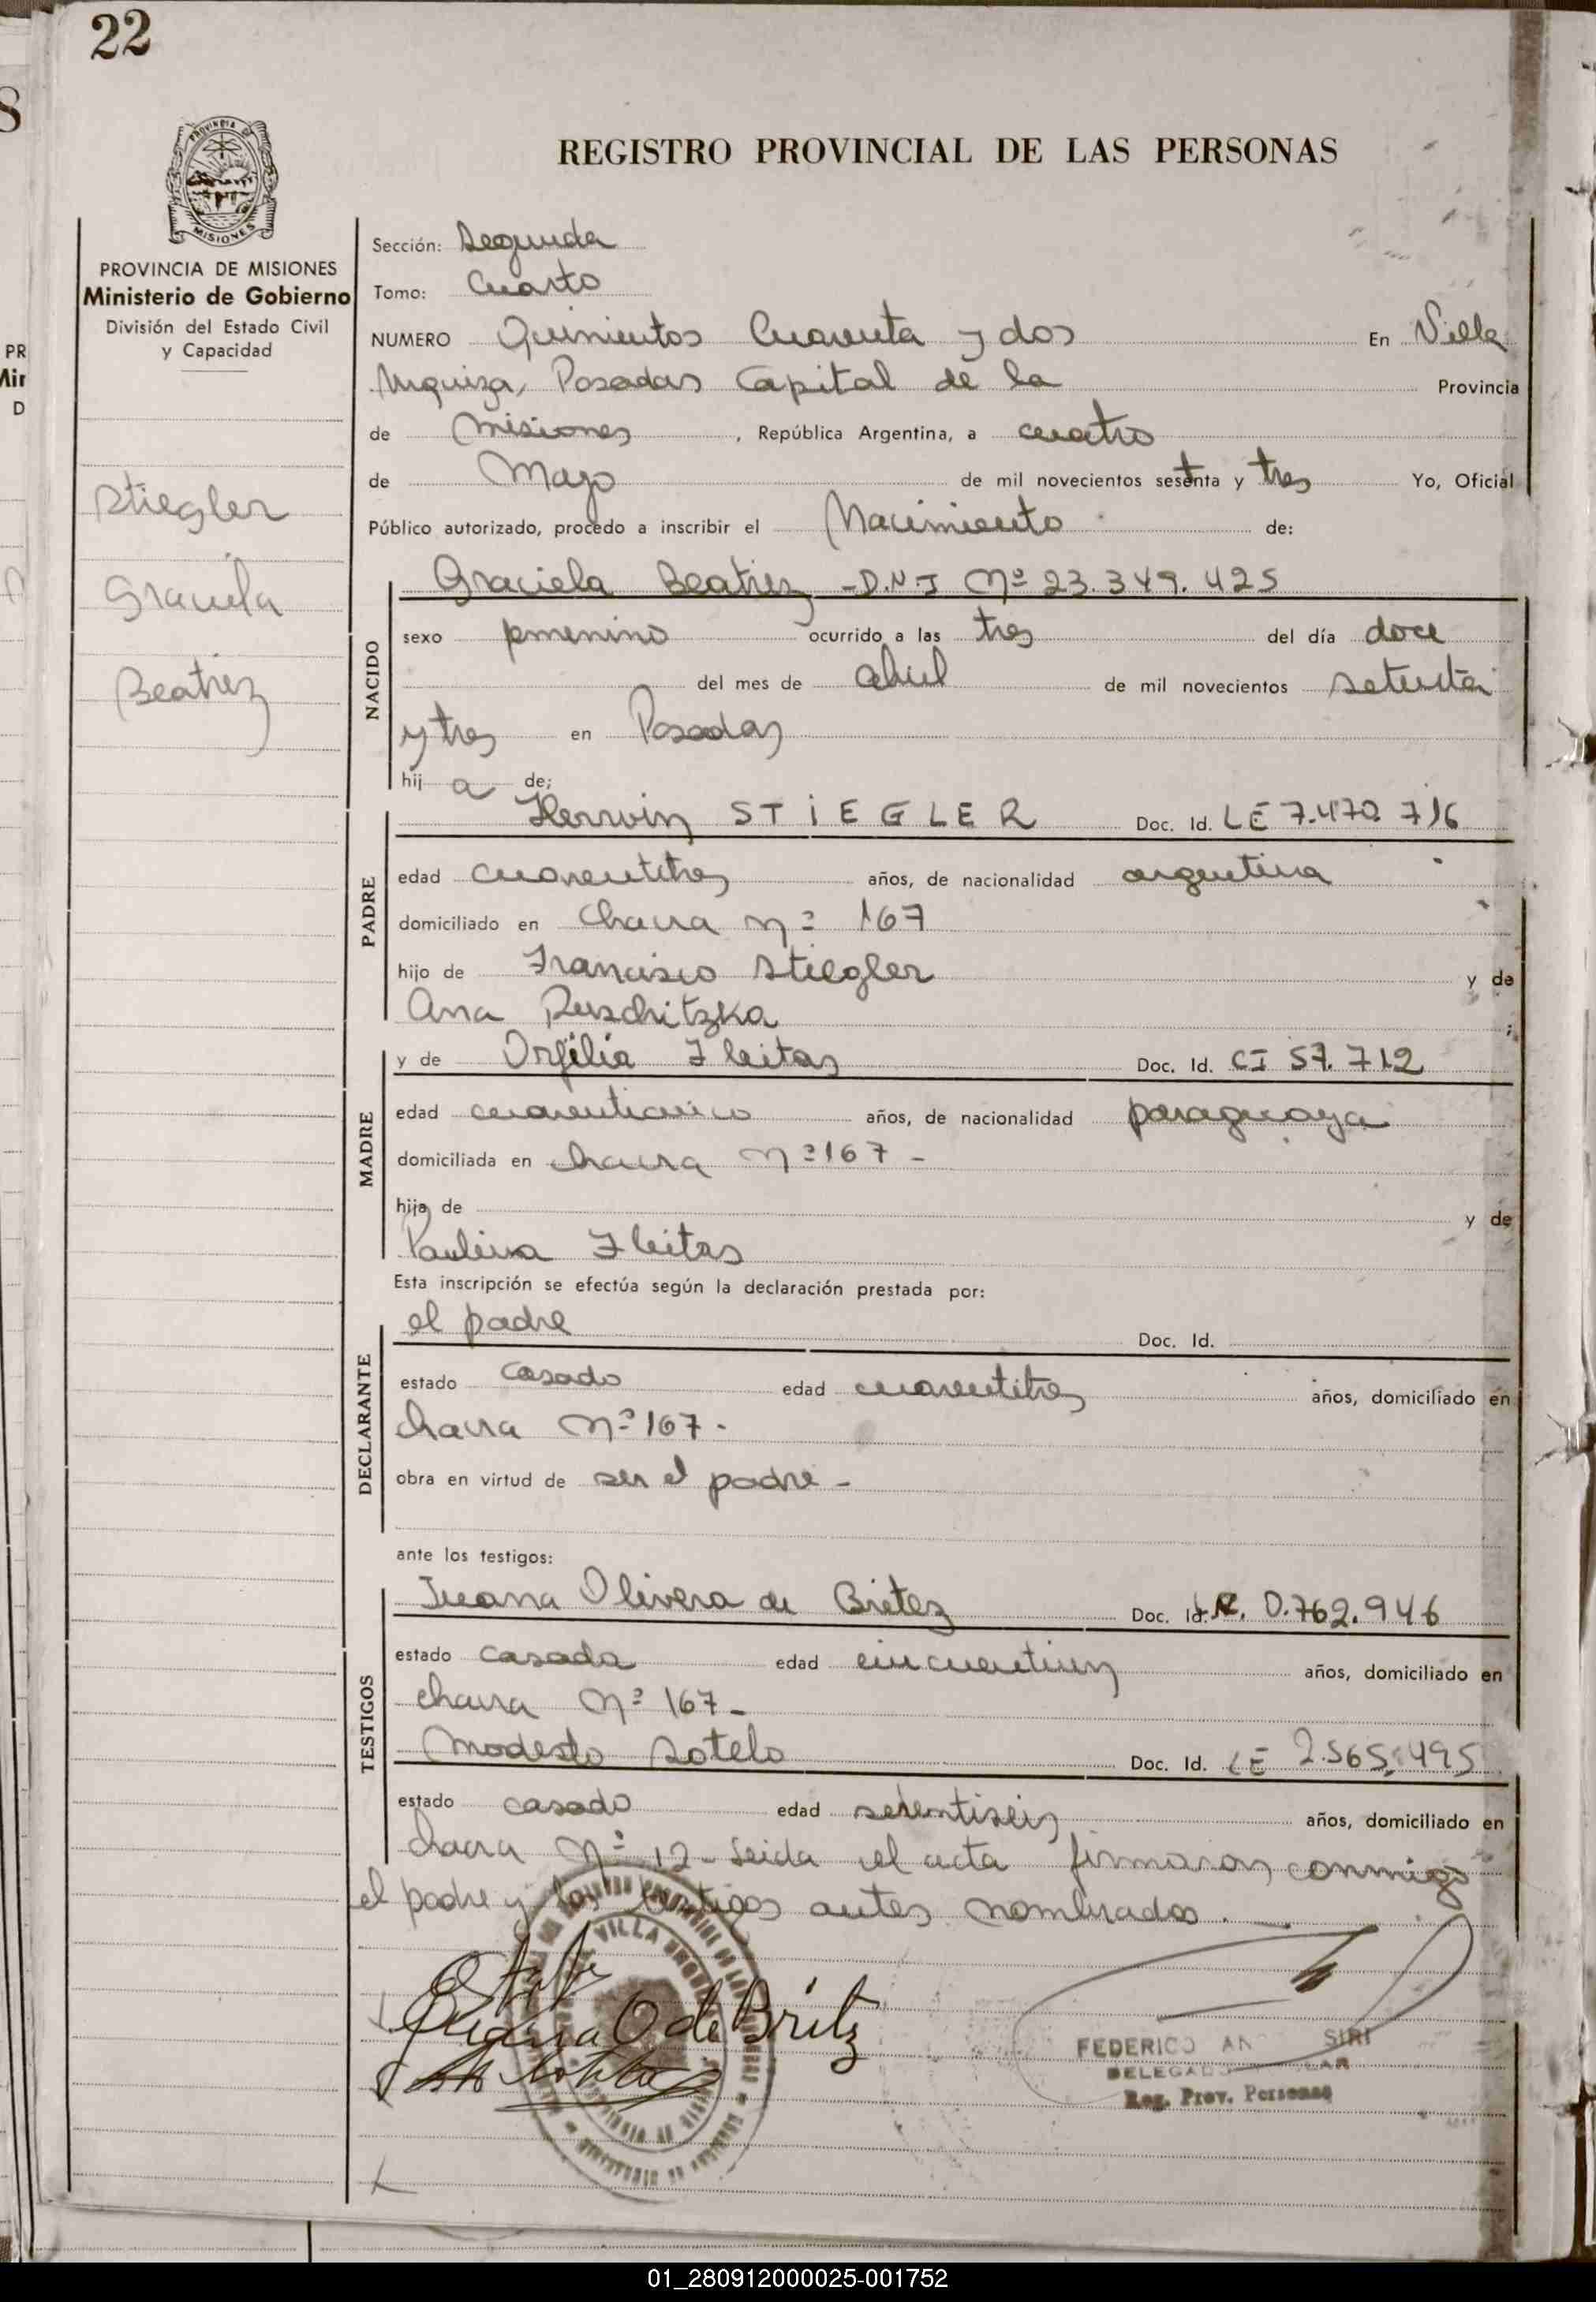 22
REGISTRO PROVINCIAL DE LAS PERSONAS
PROVINCIA DE
MISIONES
PROVINCIA DE MISIONES
Ministerio de Gobierno
División del Estado Civil
y Capacidad
Stiegler
Graciela
Beatriz
Sección: Segunda
Tomo: Cuarto
NUMERO Quinientos Cuarenta y dos En Villa
Urquiza, Posadas Capital de la Provincia
de Misiones, República Argentina, a cuatro
de Mayo de mil novecientos setenta y tres Yo, Oficial
Público autorizado, procedo a inscribir el Nacimiento de:
NACIDO
Graciela Beatriz - D.N.I Nº 23.349.425
sexo femenino ocurrido a las tres del día doce
del mes de abril de mil novecientos setenta
y tres en Posadas
hij a de;
PADRE
Herwin STiEGLER Doc. Id. LE 7.470.716
edad cuarentitres años, de nacionalidad argentina
domiciliado en chacra nº 167
hijo de Francisco Stiegler y de
Ana Ruschitzka ;
MADRE
y de Orfilia Fleitas Doc. Id. CI 57.712
edad cuarenticinco años, de nacionalidad paraguaya
domiciliada en chacra Nº 167 -
hija de y de
Paulina Fleitas
Esta inscripción se efectúa según la declaración prestada por:
DECLARANTE
el padre Doc. Id.
estado casado edad cuarentitres años, domiciliado en
chacra Nº 167 -
obra en virtud de ser el padre -
ante los testigos:
TESTIGOS
Juana Olivera de Britez Doc. Id. 0.762.946
estado casada edad cincuentiun años, domiciliado en
chacra Nº 167 -
Modesto Sotelo Doc. Id. LE 2.565.495
estado casado edad setentiseis años, domiciliado en
chacra Nº 12 - Leida el acta firmaron conmigo
el padre y los testigos antes nombrados.
VILLA
Juana O de Britz
FEDERICO SIRI
DELEGADO
Reg. Prov. Personas
01_280912000025-001752